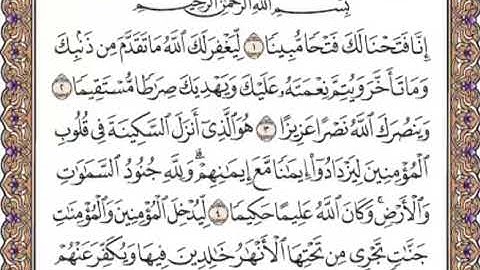 بِسْمِ ٱللَّهِ ٱلرَّحْمَٰنِ ٱلرَّحِيمِ
إِنَّا فَتَحْنَا لَكَ فَتْحًا مُّبِينًا ١ لِّيَغْفِرَ لَكَ ٱللَّهُ مَا تَقَدَّمَ مِن ذَنۢبِكَ
وَمَا تَأَخَّرَ وَيُتِمَّ نِعْمَتَهُۥ عَلَيْكَ وَيَهْدِيَكَ صِرَٰطًا مُّسْتَقِيمًا ٢
وَيَنصُرَكَ ٱللَّهُ نَصْرًا عَزِيزًا ٣ هُوَ ٱلَّذِىٓ أَنزَلَ ٱلسَّكِينَةَ فِى قُلُوبِ
ٱلْمُؤْمِنِينَ لِيَزْدَادُوٓا۟ إِيمَٰنًا مَّعَ إِيمَٰنِهِمْ ۗ وَلِلَّهِ جُنُودُ ٱلسَّمَٰوَٰتِ
وَٱلْأَرْضِ ۚ وَكَانَ ٱللَّهُ عَلِيمًا حَكِيمًا ٤ لِّيُدْخِلَ ٱلْمُؤْمِنِينَ وَٱلْمُؤْمِنَٰتِ
جَنَّٰتٍ تَجْرِى مِن تَحْتِهَا ٱلْأَنْهَٰرُ خَٰلِدِينَ فِيهَا وَيُكَفِّرَ عَنْهُمْ